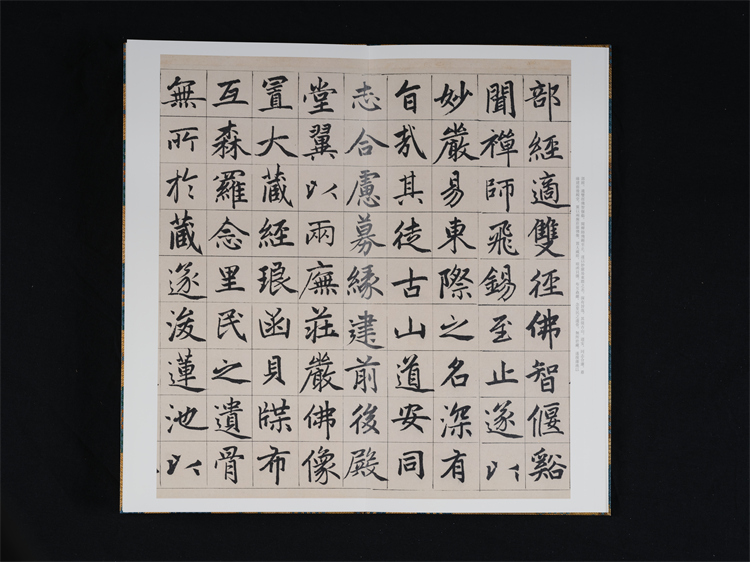 部經適雙徑佛智偃谿
聞禪師飛錫至止遂以
妙嚴易東際之名深有
旨哉其徒古山道安同
志合慮募緣建前後殿
堂翼以兩廡莊嚴佛像
置大藏經琅函貝牒布
互森羅念里民之遺骨
無所於藏遂浚蓮池以